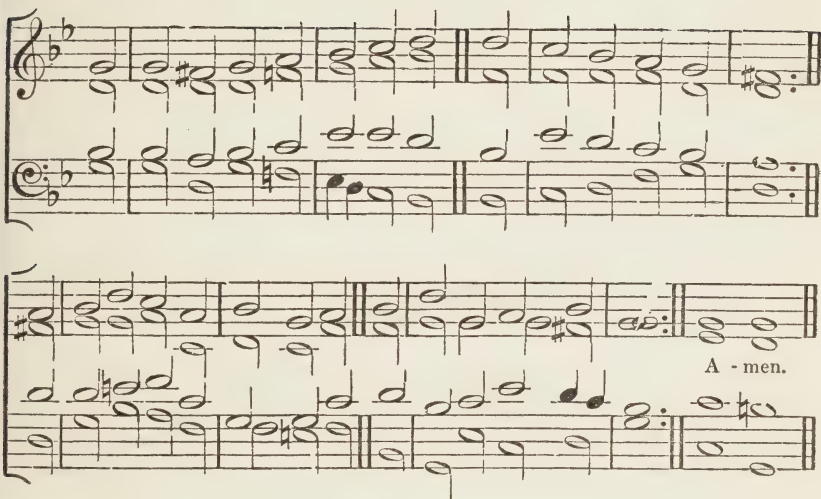 A - men.